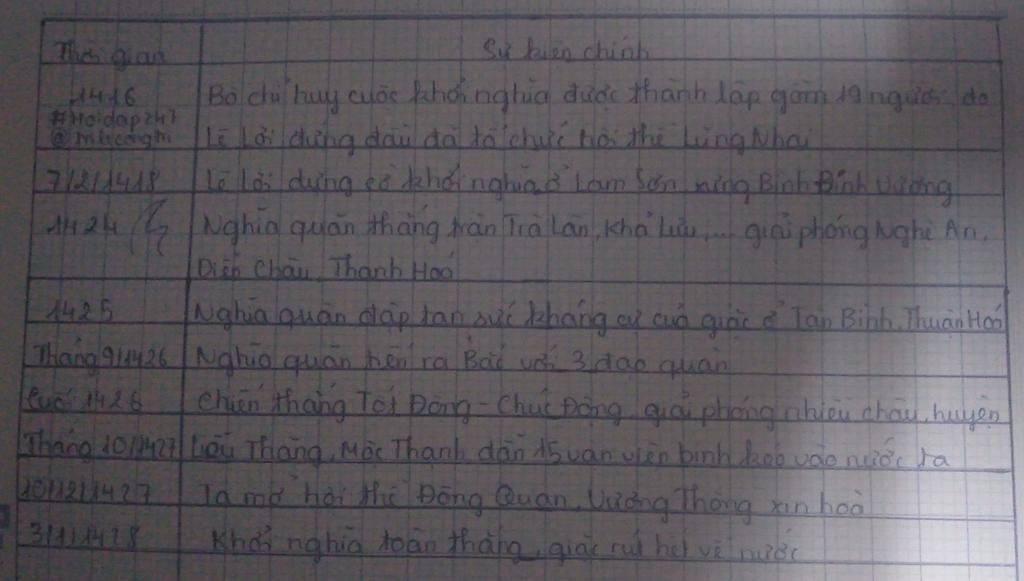 Thời gian Sự kiện chính
1416 Bộ chỉ huy cuộc khởi nghĩa được thành lập gồm 19 người, do
#Hoidap247
Lê Lợi đứng đầu đã tổ chức hội thề Lũng Nhai
7/2/1418 Lê Lợi dựng cờ khởi nghĩa ở Lam Sơn xưng Bình Định Vương
1424 Nghĩa quân thắng trận Trà Lân, Khả Lưu,... giải phóng Nghệ An,
Diễn Châu, Thanh Hoá
1425 Nghĩa quân đập tan sức kháng cự của giặc ở Tân Bình, Thuận Hoá
Tháng 9/1426 Nghĩa quân tiến ra Bắc với 3 đạo quân
Cuối 1426 Chiến thắng Tốt Động - Chúc Động, giải phóng nhiều châu, huyện
Tháng 10/1427 Liễu Thăng, Mộc Thạnh dẫn 15 vạn viện binh kéo vào nước ta
10/12/1427 Ta mở hội thề Đông Quan, Vương Thông xin hoà
3/1/1428 Khởi nghĩa toàn thắng, giặc rút hết về nước